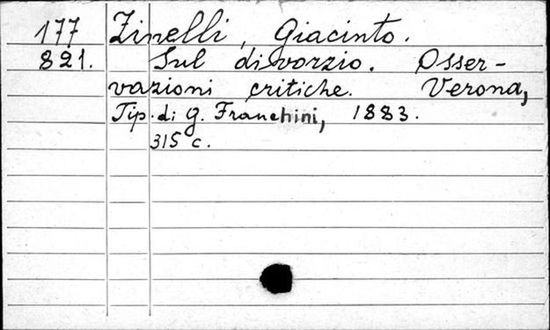 177 Zinelli, Giacinto.
821. Sul divorzio. Osser-
vazioni critiche. Verona,
Tip. di G. Franchini, 1883.
315 c.